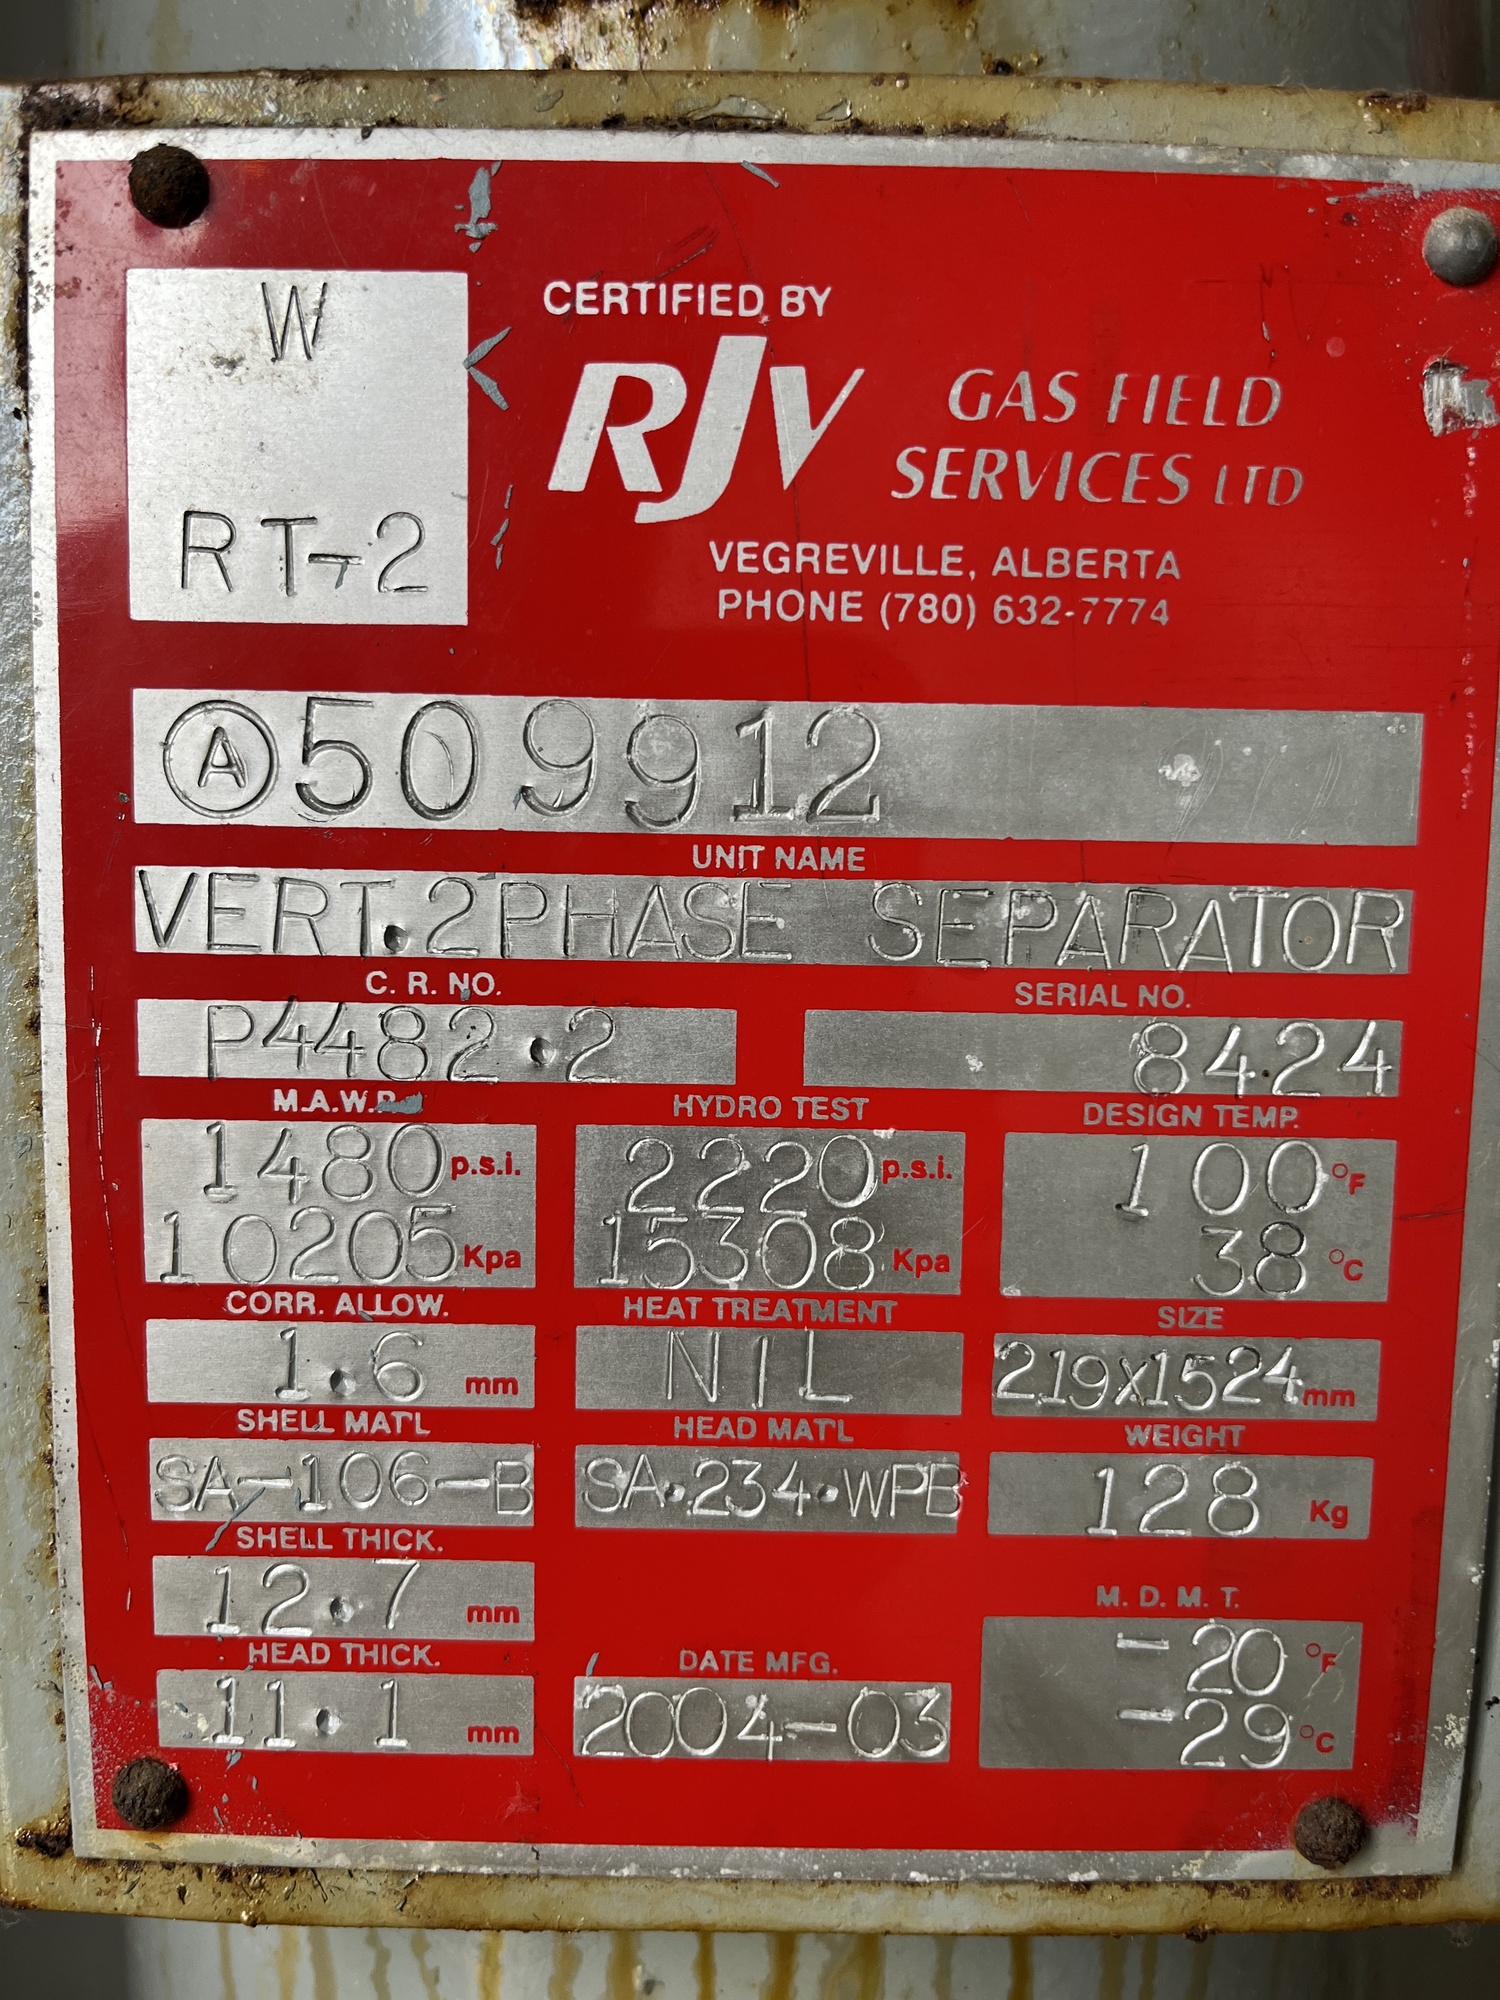 W
RT-2
CERTIFIED BY
RJV GAS FIELD
SERVICES LTD
VEGREVILLE, ALBERTA
PHONE (780) 632-7774
Ⓐ509912
UNIT NAME
VERT.2PHASE SEPARATOR
C. R. NO. SERIAL NO.
P4482.2 8424
M.A.W.P. HYDRO TEST DESIGN TEMP.
1480 p.s.i. 2220 p.s.i. 100 °F
10205 Kpa 15308 Kpa 38 °C
CORR. ALLOW. HEAT TREATMENT SIZE
1.6 mm NIL 219X1524 mm
SHELL MAT'L HEAD MAT'L WEIGHT
SA-106-B SA.234.WPB 128 Kg
SHELL THICK.
12.7 mm
M. D. M. T.
-20 °F
HEAD THICK. DATE MFG.
11.1 mm 2004-03 -29 °C